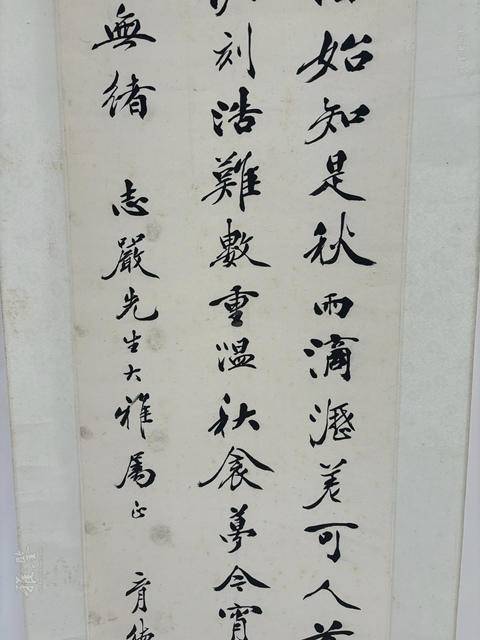 始知是秋雨滴瀝差可人
刻浩難數重溫秋衾夢今宵
無緒 志嚴先生大雅屬正 育